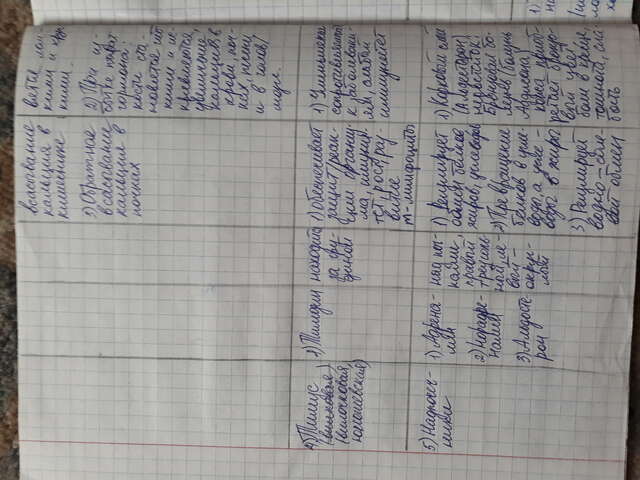 всасывание
кальция в
кишечнике
3) Обратное
всасывание
кальция в
почках
вятся лом-
кими и хруп
кими.
2) При из-
бытке парат
гормона:
кости ста-
новятся
кими и ис-
кревляются,
увеличение
кальция в
крови, поч-
ках, печени
и в голов/
мозг.
4) Тимус
(вилковая)
(вилочковая,
юношевская)
1) Тимозин
находится
за гру-
диной
1) обеспечивает
защит/реак-
ции организ-
ма, иммуни-
тет, рост/раз-
витие
т-лимфоциты
1) Уменьшение
сопротивляемости
к заболевани-
ям, слабый
иммунитет
5) Надпочеч-
ники
1) Адрена-
лин
2) Норадре-
налин
3) Альдосте-
рон
над поч-
ками,
правый
треуголь-
ной, ле-
вый -
округ-
лый
1) Регулирует
обмен белков,
жиров, углеводов
2) Превращение
белков в угле-
воды, а угле-
воды в жиры
3) Регулирует
водно-соле-
вой обмен
1) Корковый слой
(Альдестерон)
недостаток:
Бронзовая бо-
лезнь (болезнь
Аддисона)
кожа приоб-
ретает бронзо-
вый цвет,
боли в крестце,
тошнота, сла-
бость